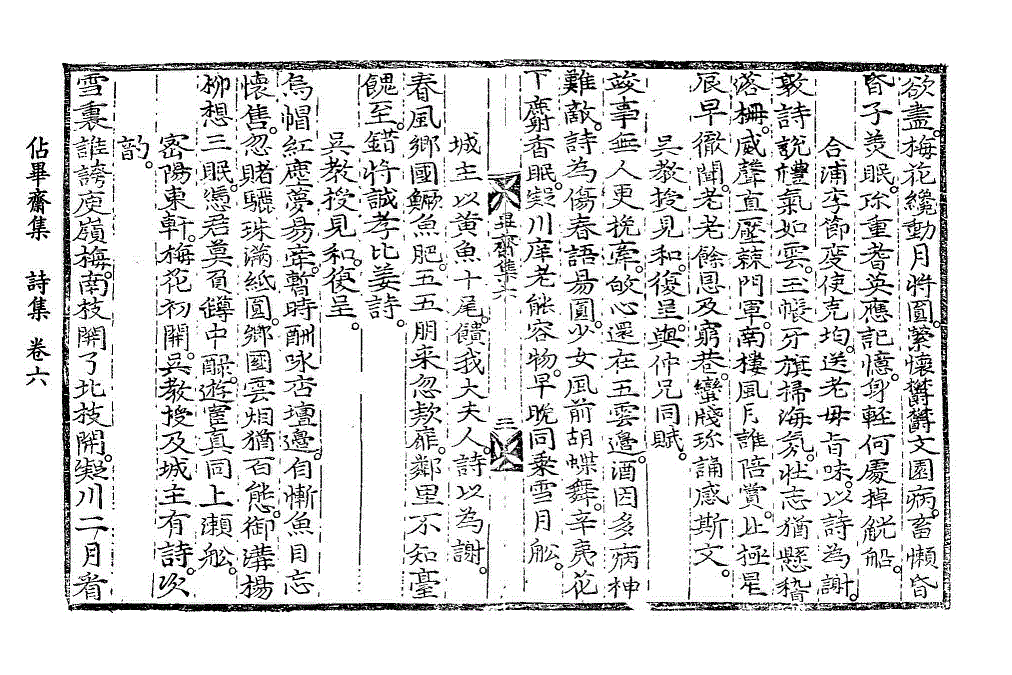 欲盡。梅花纔動月將圓。縈懷欝欝文園病。畜懶昏
昏子羙眠。珎重耆英應記憶。身輕何處掉觥船。
合浦李節度使克均。送老母旨味。以詩為謝。
敦詩說禮氣如雲。三帳牙旗掃海氛。壯志猶懸稽
落柵。威聲直壓棘門軍。南樓風月誰陪賞。北極星
辰早徹聞。老老餘恩及窮巷。蠻牋珎誦感斯文。
吳教授見和。復呈。與仲兄同賦。
竣事無人更挽牽。故心還在五雲邊。酒因多病神
難敵。詩為傷春語易圓。少女風前胡蝶舞。辛夷花
下麝香眠。凝川庠老能容物。早晚同乘雪月舩。
畢齋集六
三
城主以黄魚十尾。饋我大夫人。詩以為謝。
春風鄉國鱖魚肥。五五朋来忽欵扉。鄰里不知臺
餽至。錯將誠孝比姜詩。
吳教授見和。復呈。
烏帽紅塵夢易牽。暫時酬咏杏壇邊。自慚魚目忘
懷售。忽睹驪珠滿紙圓。鄉國雲烟猶百態。御溝楊
柳想三眠。憑君莫負罇中醁。遊宦真同上瀨舩。
密陽東軒。梅花初開。吳教授及城主有詩。次
韵。
雪裏誰誇庾嶺梅。南枝開了北枝開。凝川二月看
佔畢齋集 詩集 卷六